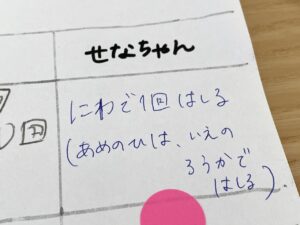 せなちゃん
回
にわで1回はしる
(あめのひは、いえの
ろうかで
はしる)